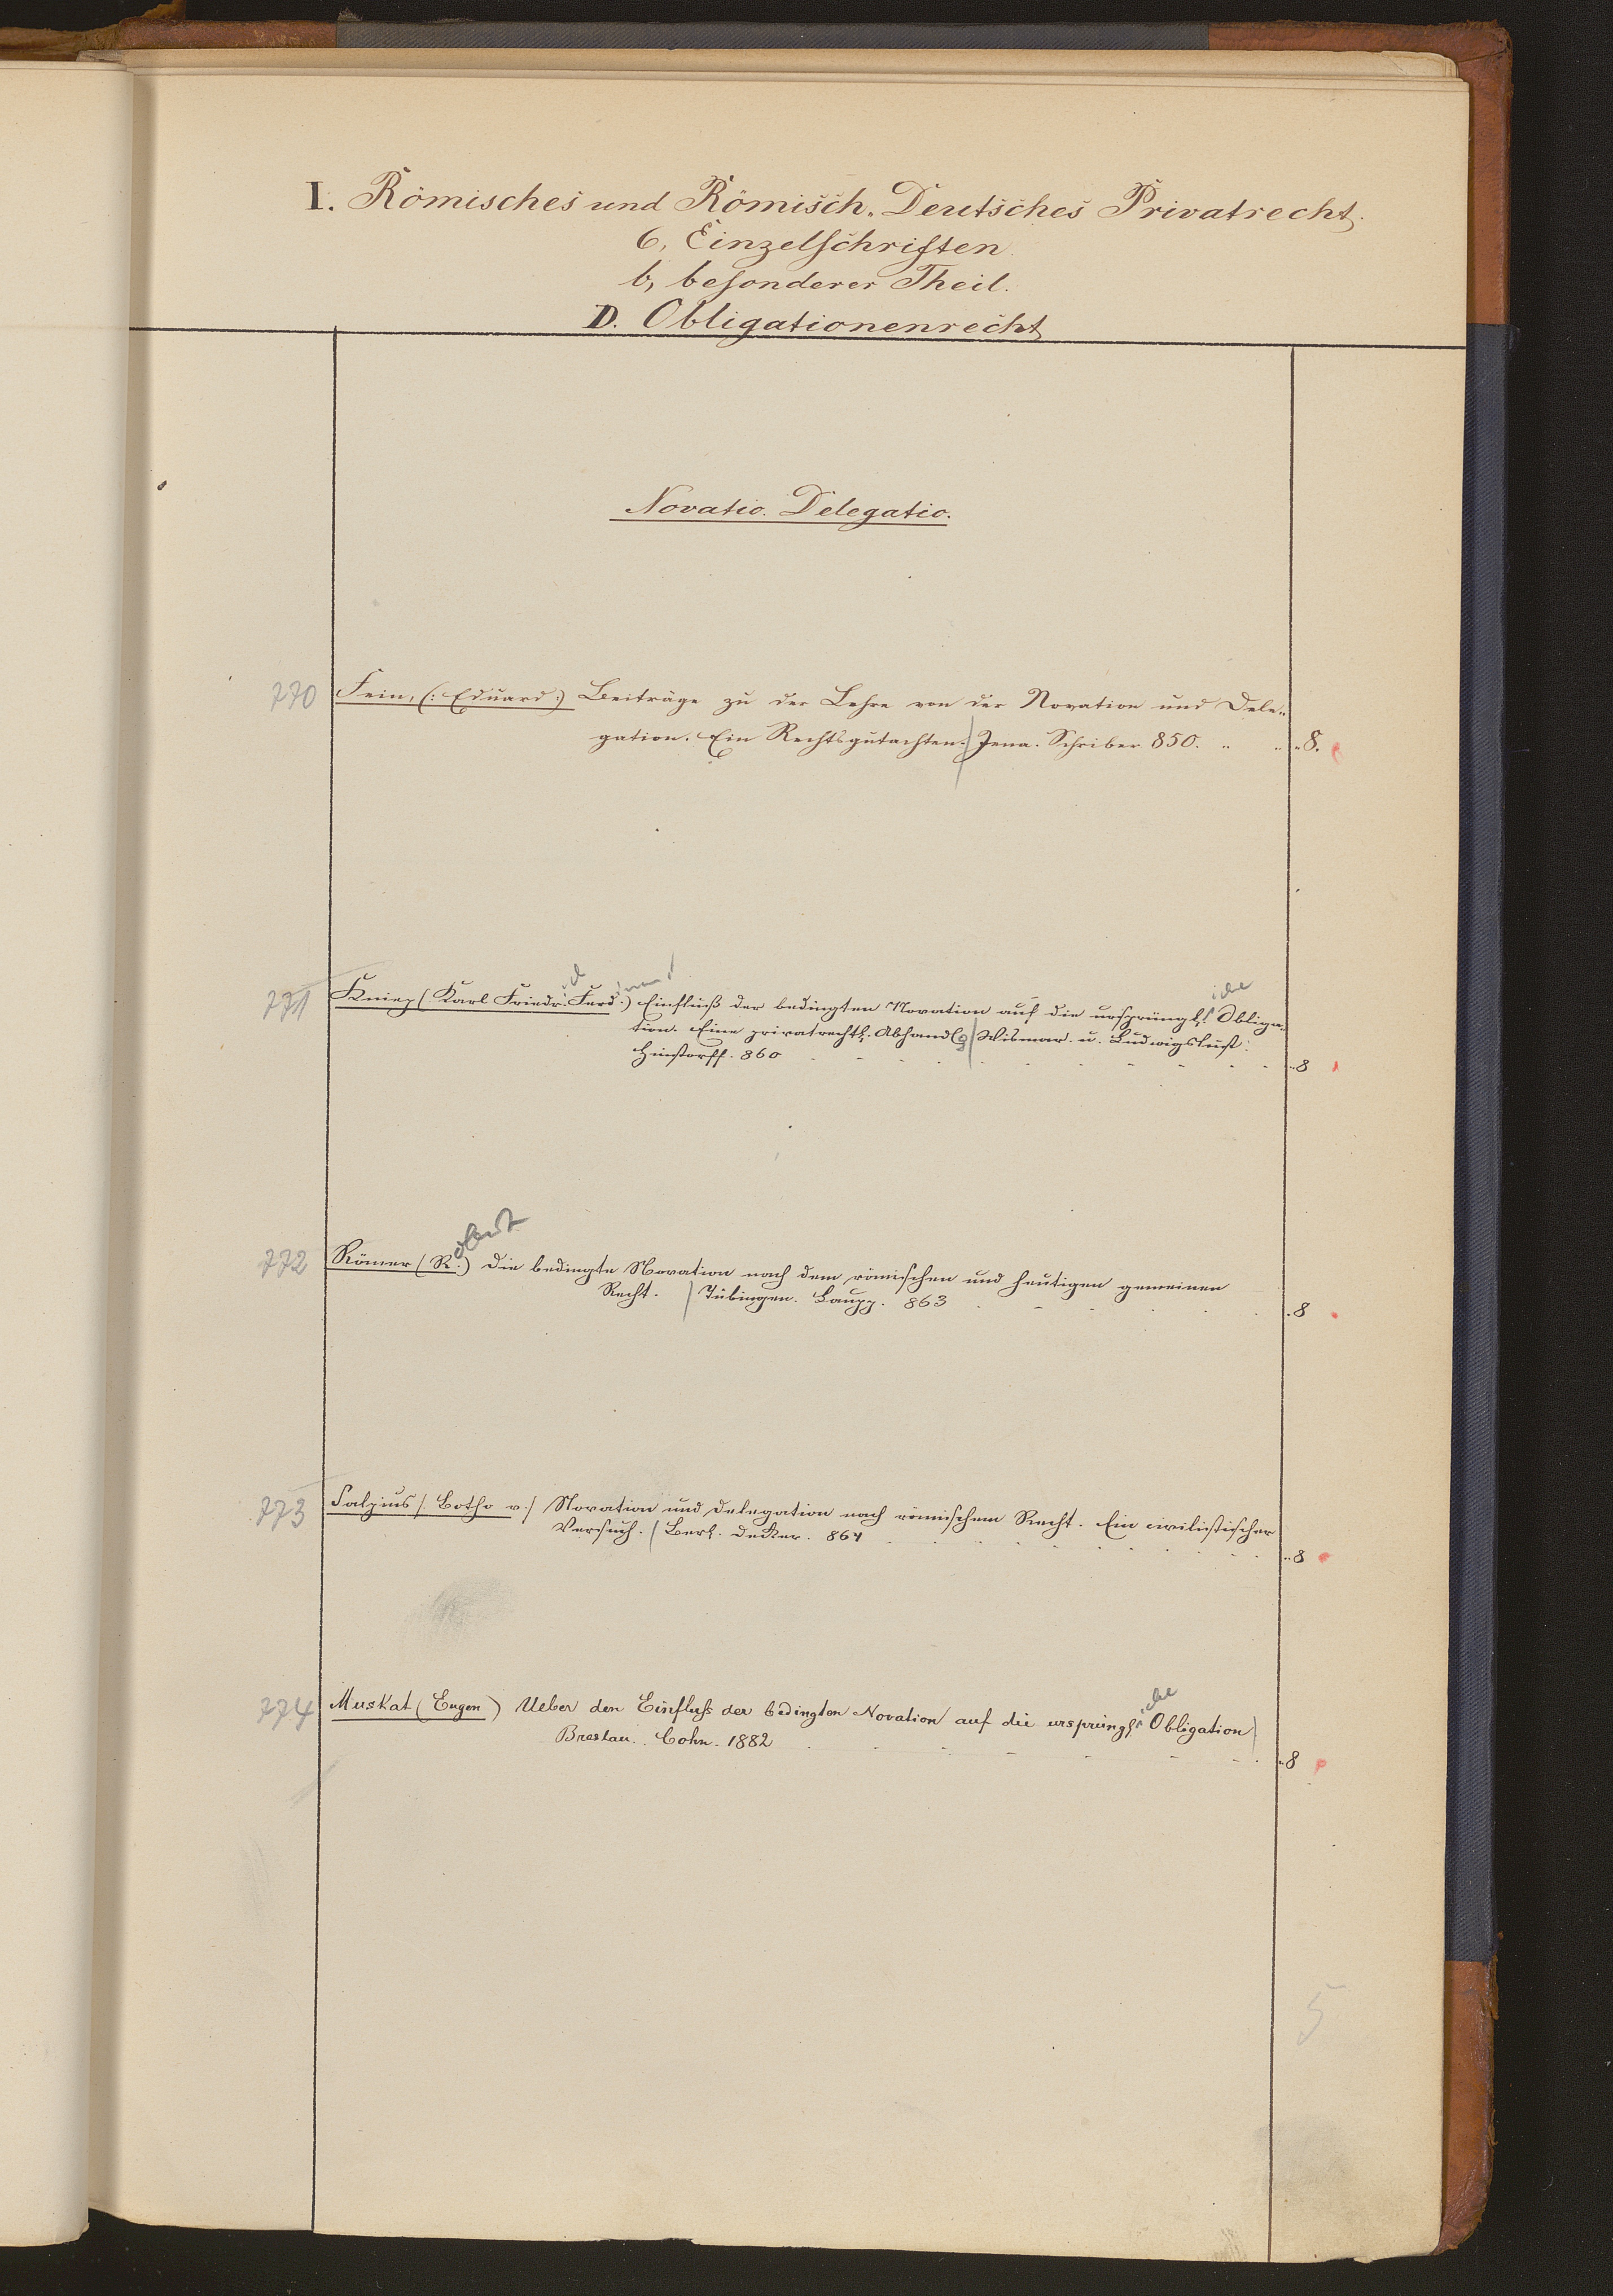 I. Römisches und Römisch. Deutsches Privatrecht.
6, Einzelschriften.
b, besonderer Theil.
D. Obligationenrecht
Novatio. Delegatio.
770 Fein, (: Eduard :) Beiträge zu der Lehre von der Novation und Dele-
gation. Ein Rechtsgutachten. Jena. Schreiber 850. 8.
ich inand iche
771 Kniep (Karl Friedr. Ferd.) Einfluß der bedingten Novation auf die ursprüngl. Obliga-
tion. Eine privatrechtl. Abhandlg Wismar. u. Ludwigslust.
Hinstorff. 860 8
obert
772 Römer (R.) Die bedingte Novation nach dem römischen und heutigen gemeinen
Recht. Tübingen. Laupp. 863 8
773 Salpius /. Botho v./ Novation und Delegation nach römischem Recht. Ein civilistischer
Versuch. Berl. Decker. 864 8
iche
774 Muskat (Eugen) Ueber den Einfluß der bedingten Novation auf die ursprüngl. Obligation
Breslau. Cohn. 1882 8
5